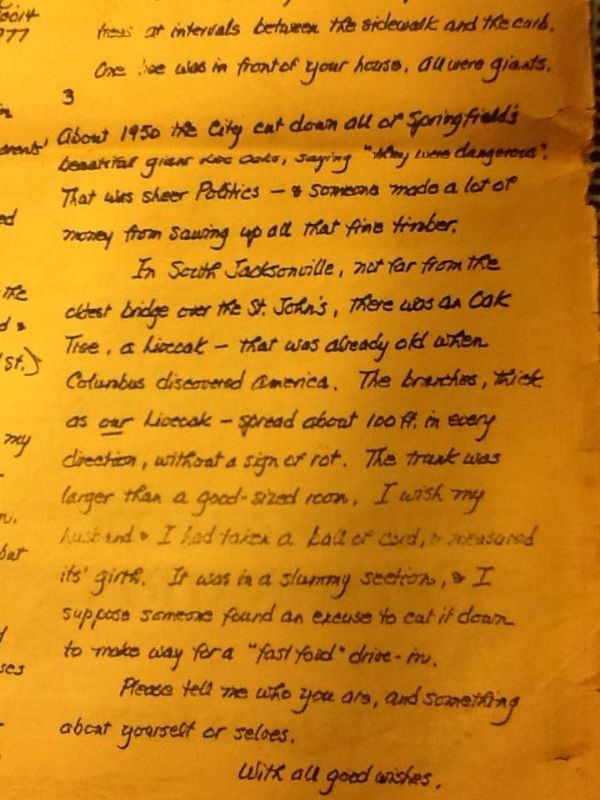 trees at intervals between the sidewalk and the curb.
One tree was in front of your house. All were giants.
3
About 1950 the City cut down all of Springfield's
beautiful giant Live Oaks, saying "they were dangerous".
That was sheer Politics — & someone made a lot of
money from sawing up all that fine timber.
In South Jacksonville, not far from the
oldest bridge over the St. John's, there was an Oak
Tree, a Liveoak — that was already old when
Columbus discovered America. The branches, thick
as our Liveoak — spread about 100 ft. in every
direction, without a sign of rot. The trunk was
larger than a good-sized room. I wish my
husband & I had taken a ball of cord, & measured
its' girth. It was in a slummy section, & I
suppose someone found an excuse to cut it down
to make way for a "fast food" drive-in.
Please tell me who you are, and something
about yourself or selves.
With all good wishes.
77
arents'
ed
the
d &
St.)
my
n.
but
ses